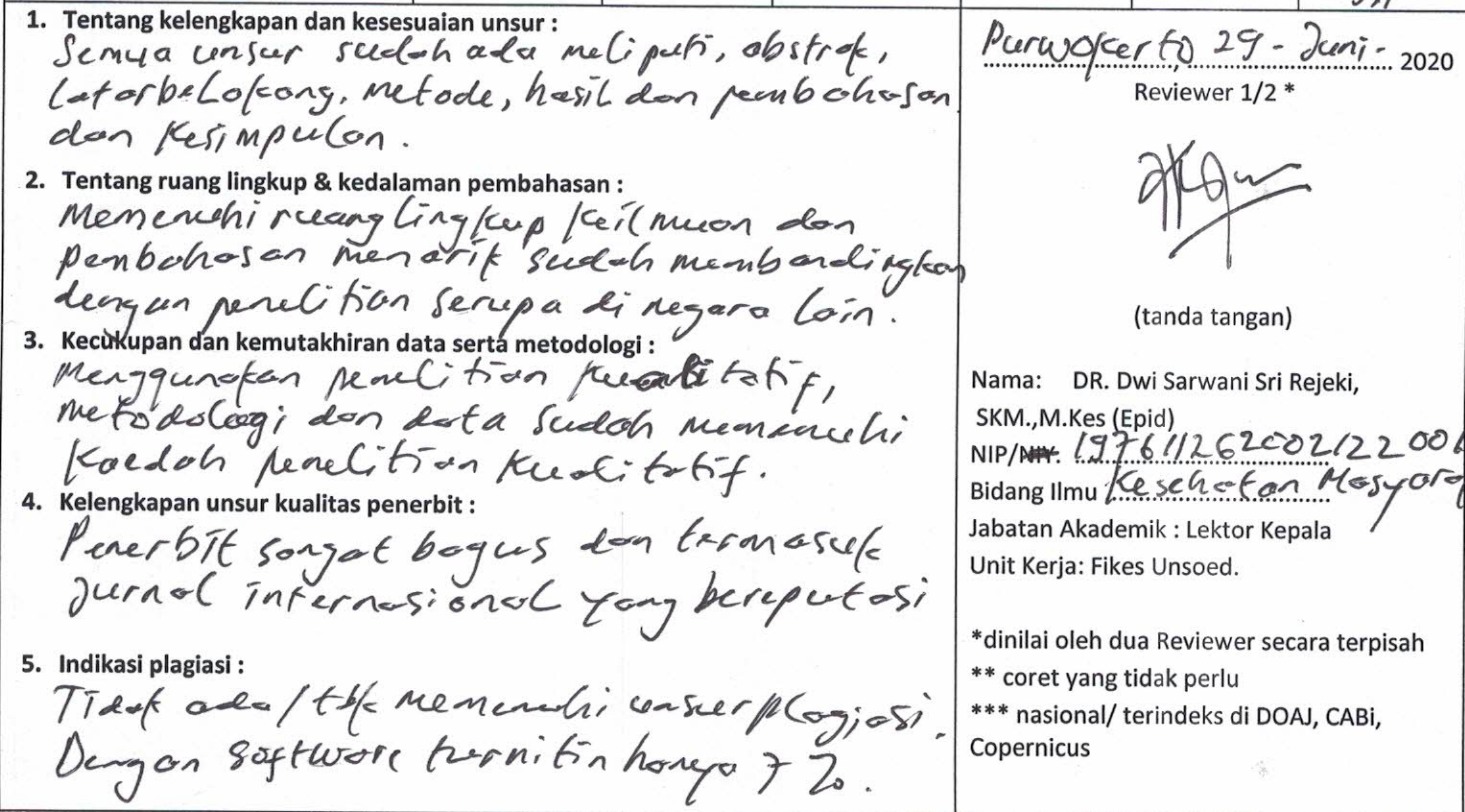 1. Tentang kelengkapan dan kesesuaian unsur :
Semua unsur sudah ada meliputi, abstrak,
latarbelakang, metode, hasil dan pembahasan
dan kesimpulan.
2. Tentang ruang lingkup & kedalaman pembahasan :
Memenuhi ruang lingkup keilmuan dan
pembahasan menarik sudah membandingkan
dengan penelitian serupa di negara lain.
3. Kecukupan dan kemutakhiran data serta metodologi :
Menggunakan penelitian kualitatif,
metodologi dan data sudah memenuhi
kaedah penelitian kualitatif.
4. Kelengkapan unsur kualitas penerbit :
Penerbit sangat bagus dan termasuk
jurnal internasional yang bereputasi
5. Indikasi plagiasi :
Tidak ada / tdk memenuhi unsur plagiasi.
Dengan software turnitin hanya 7 %.
Purwokerto, 29 - Juni - 2020
Reviewer 1/2 *
(tanda tangan)
Nama: DR. Dwi Sarwani Sri Rejeki,
SKM.,M.Kes (Epid)
NIP/NIY. 197611262002122001
Bidang Ilmu Kesehatan Masyara
Jabatan Akademik : Lektor Kepala
Unit Kerja: Fikes Unsoed.
*dinilai oleh dua Reviewer secara terpisah
** coret yang tidak perlu
*** nasional/ terindeks di DOAJ, CABi,
Copernicus